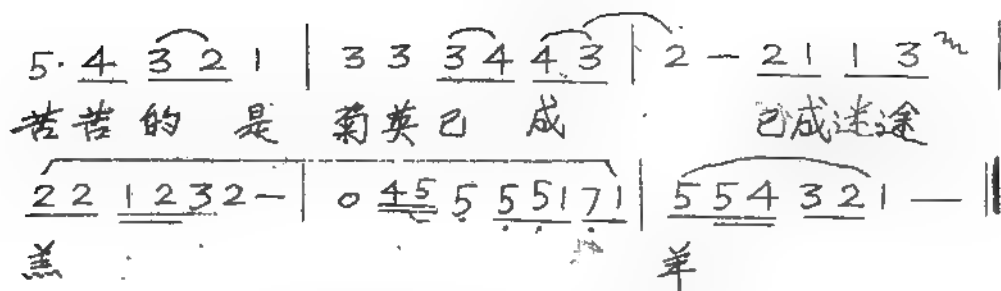 5· 4 3 2 1 | 3 3 3 4 4 3 | 2 - 2 1 1 3 |
苦苦的 是 菊英已 成 已成迷途
2 2 1 2 3 2 - | 0 4 5 5 5 5 1 7 1 | 5 5 4 3 2 1 — ‖
羔 羊